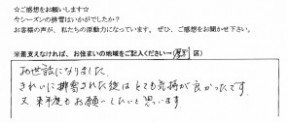 ☆ご感想をお願いします☆
今シーズンの排雪はいかがでしたか？
お客様の声が、私たちの原動力になっています。ぜひ、ご感想をお聞かせ下さい。
※差支えなければ、お住まいの地域をご記入ください→ 区）
お世話になりました。
きれいに排雪された後はとても気持が良かったです。
又 来季もお願いしたいと思います